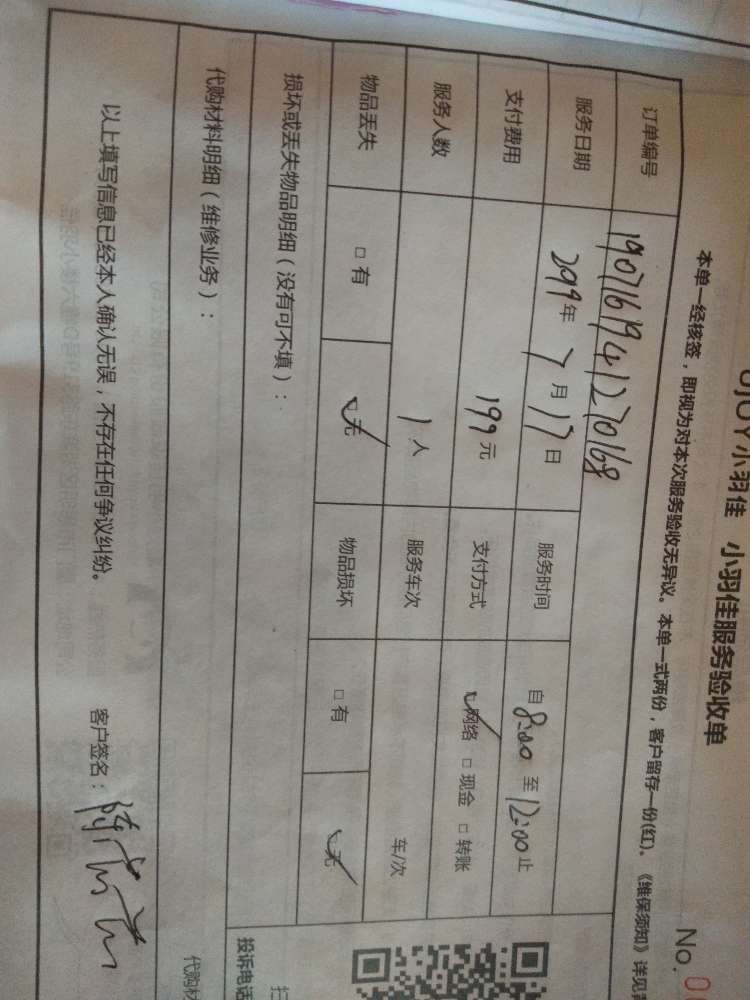 UJOY小羽佳 小羽佳服务验收单
No. 0
本单一经核签，即视为对本次服务验收无异议。本单一式两份，客户留存一份(红)。《维保须知》详见
订单编号 1907161941270168
服务日期 2019年7月17日 服务时间 自8:00至12:00止
支付费用 199元 支付方式 ☑网络 □现金 □转账
服务人数 1人 服务车次 车/次
物品丢失 □有 ☑无 物品损坏 □有 ☑无
损坏或丢失物品明细（没有可不填）：
扫
投诉电话
代购材料明细（维修业务）：
代购材
以上填写信息已经本人确认无误，不存在任何争议纠纷。 客户签名：